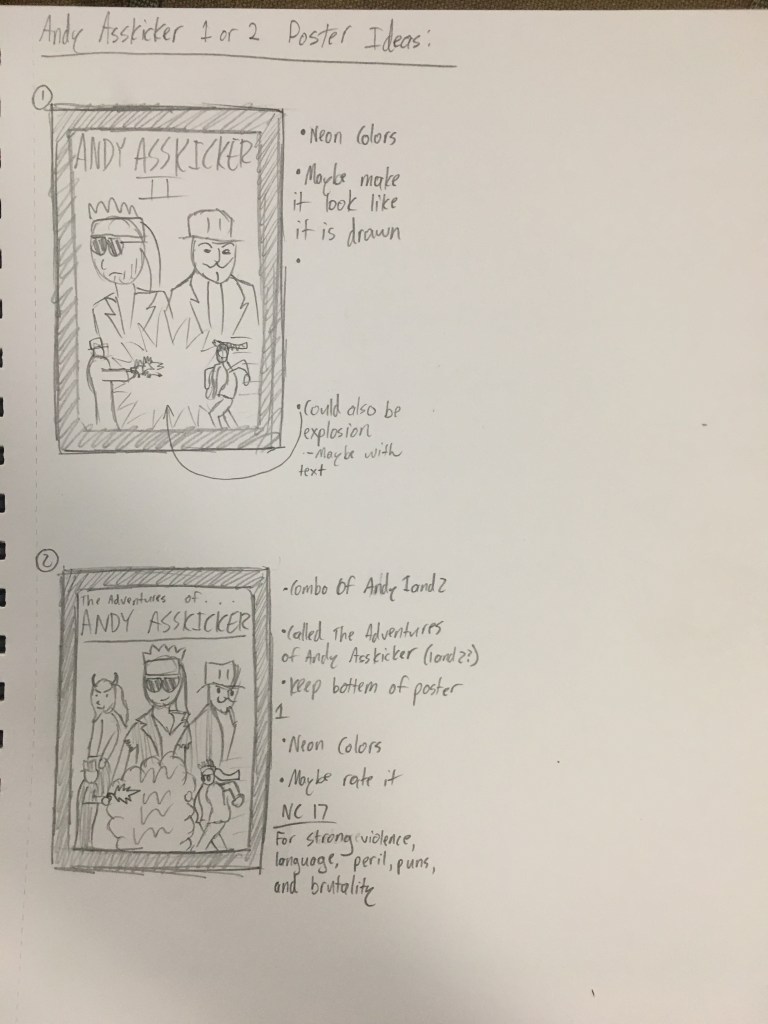 Andy Asskicker 1 or 2 Poster Ideas:
1
ANDY ASSKICKER
II
• Neon Colors
• Maybe make
it look like
it is drawn
•
• Could also be
explosion
- Maybe with
text
2
The Adventures of...
ANDY ASSKICKER
- Combo Of Andy 1 and 2
• Called The Adventures
of Andy Asskicker (1 and 2?)
• Keep bottem of poster
1
• Neon Colors
• Maybe rate it
NC 17
For strong violence,
language, peril, puns,
and brutality